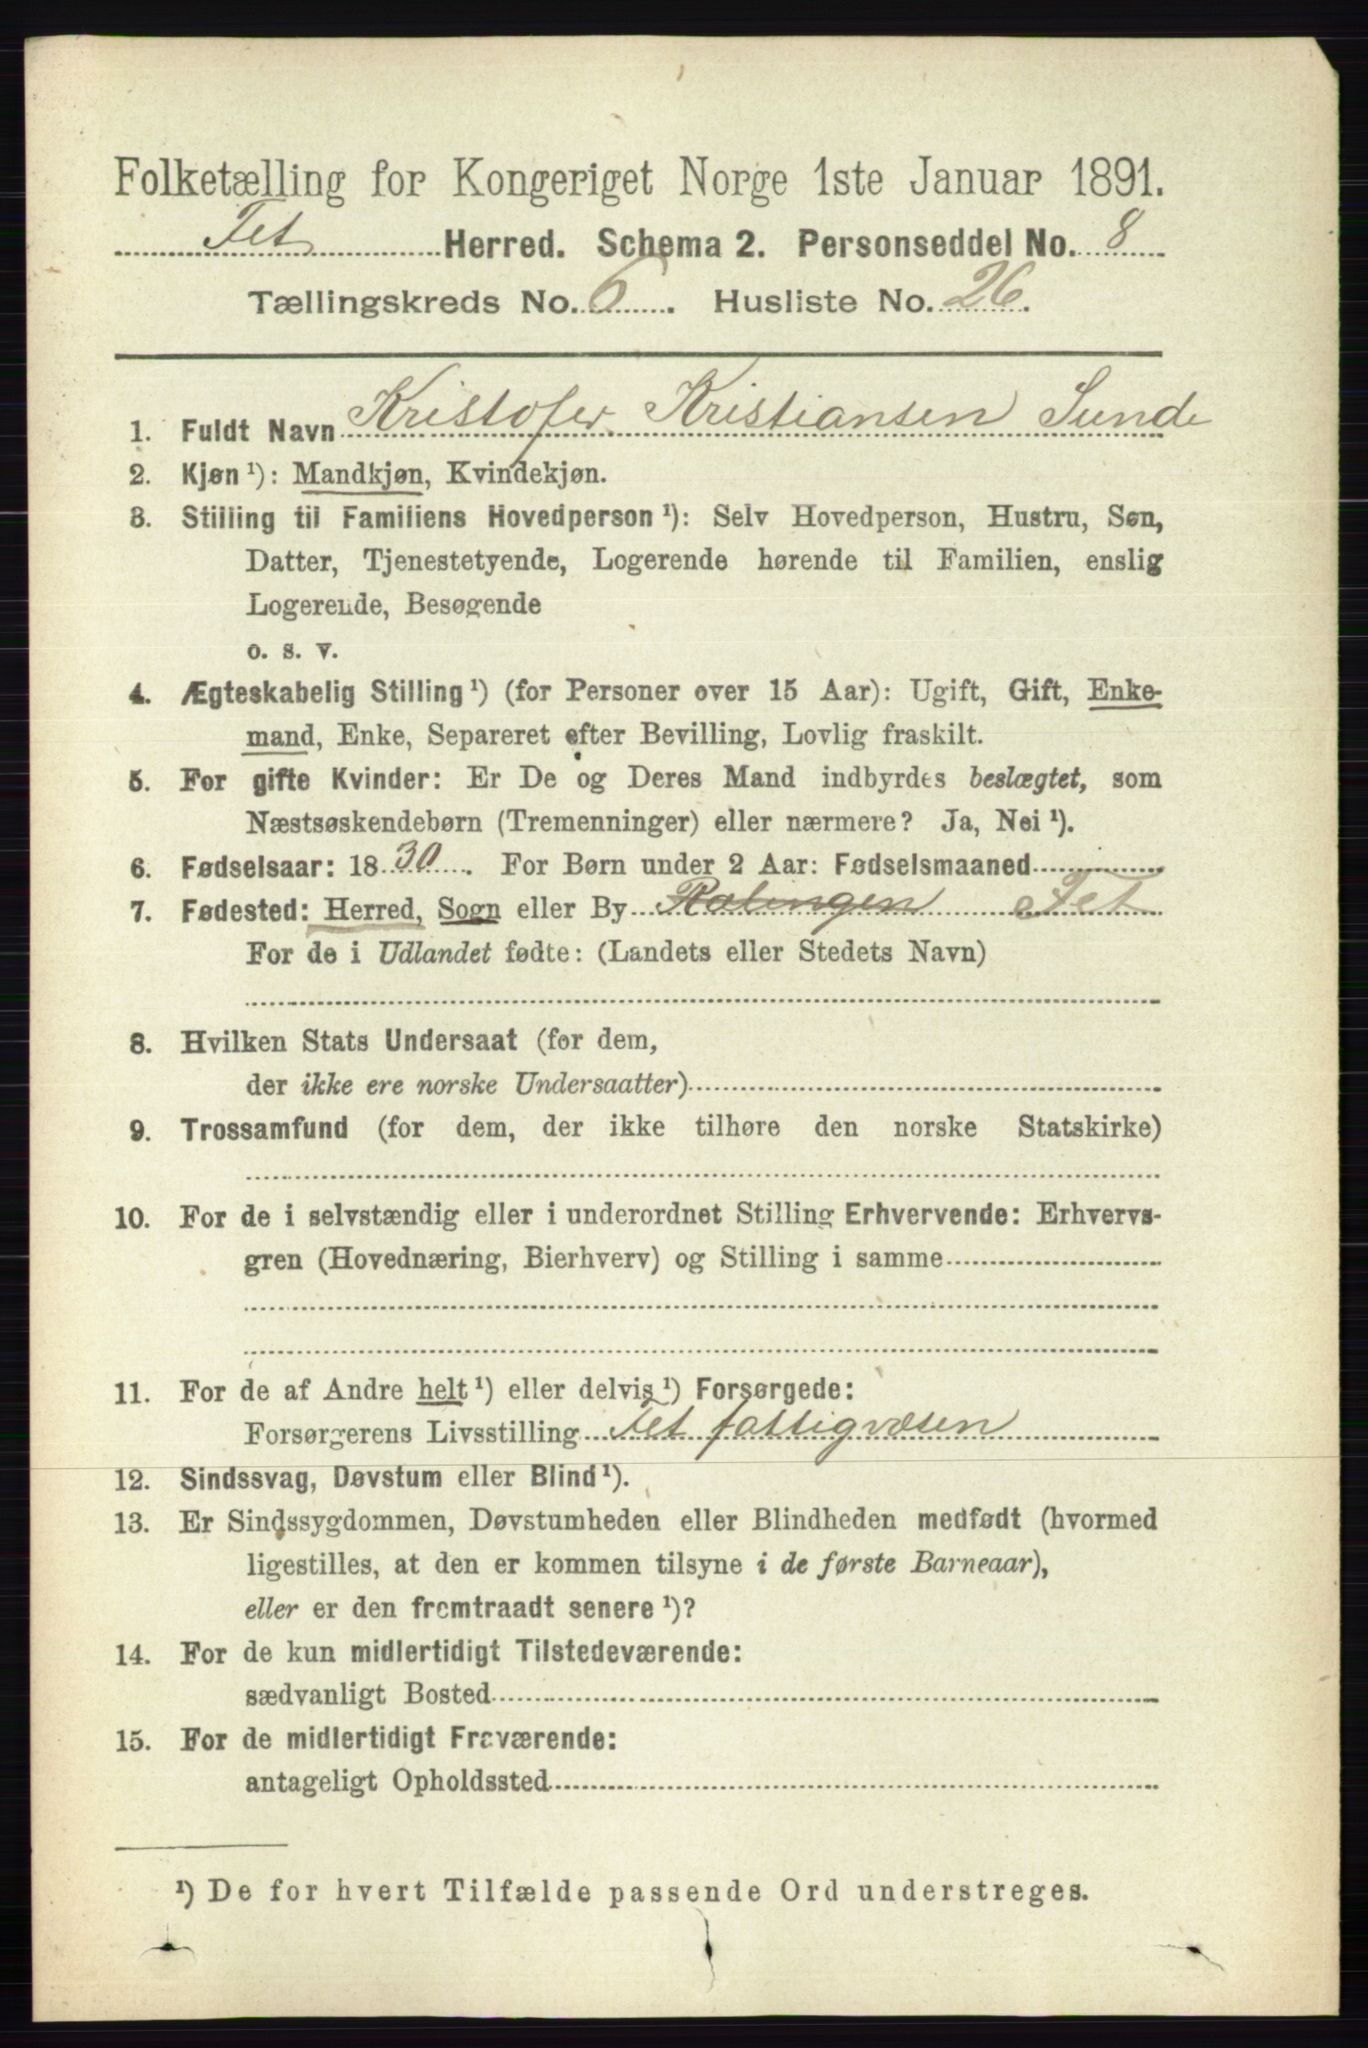 Folketælling for Kongeriget Norge 1ste Januar 1891.
Fet Herred. Schema 2. Personseddel No. 8
Tællingskreds No. 6. Husliste No. 26.
1. Fuldt Navn Kristofer Kristiansen Sunde
2. Kjøn ¹): Mandkjøn, Kvindekjøn.
3. Stilling til Familiens Hovedperson ¹): Selv Hovedperson, Hustru, Søn,
Datter, Tjenestetyende, Logerende hørende til Familien, enslig
Logerende, Besøgende
o. s. v.
4. Ægteskabelig Stilling ¹) (for Personer over 15 Aar): Ugift, Gift, Enke-
mand, Enke, Separeret efter Bevilling, Lovlig fraskilt.
5. For gifte Kvinder: Er De og Deres Mand indbyrdes beslægtet, som
Næstsøskendebørn (Tremenninger) eller nærmere? Ja, Nei ¹).
6. Fødselsaar: 1830. For Børn under 2 Aar: Fødselsmaaned
7. Fødested: Herred, Sogn eller By Rælingen Fet
For de i Udlandet fødte: (Landets eller Stedets Navn)
8. Hvilken Stats Undersaat (for dem,
der ikke ere norske Undersaatter)
9. Trossamfund (for dem, der ikke tilhøre den norske Statskirke)
10. For de i selvstændig eller i underordnet Stilling Erhvervende: Erhvervs-
gren (Hovednæring, Bierhverv) og Stilling i samme
11. For de af Andre helt ¹) eller delvis ¹) Forsørgede:
Forsørgerens Livsstilling Fet fattigvæsen
12. Sindssvag, Døvstum eller Blind ¹).
13. Er Sindssygdommen, Døvstumheden eller Blindheden medfødt (hvormed
ligestilles, at den er kommen tilsyne i de første Barneaar),
eller er den fremtraadt senere ¹)?
14. For de kun midlertidigt Tilstedeværende:
sædvanligt Bosted
15. For de midlertidigt Fraværende:
antageligt Opholdssted
¹) De for hvert Tilfælde passende Ord understreges.